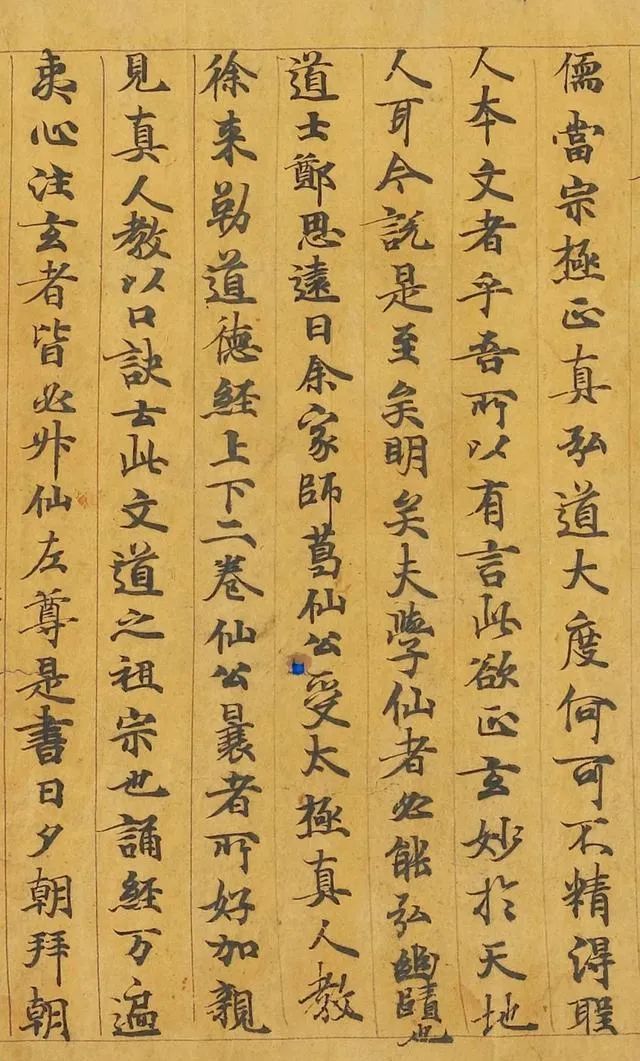 儒當宗極正真弘道大度何可不精得聖
人本文者乎吾所以有言此欲正玄妙於天地
人耳今說是至矣明矣夫學仙者必能弘幽賾也
道士鄭思遠曰余家師葛仙公受太極真人教
徐来勒道德経上下二卷仙公曩者所好加親
見真人教以口訣云此文道之祖宗也誦経万遍
夷心注玄者皆必升仙左尊是書日夕朝拜朝